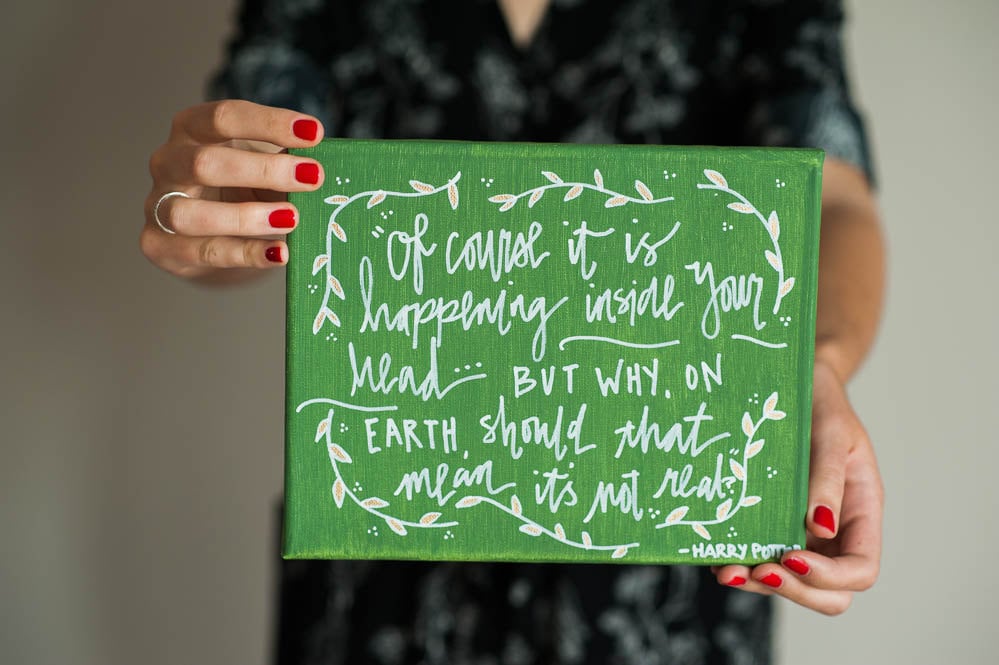 "Of course it is
happening inside your
head... BUT WHY, ON
EARTH, should that
mean it's not real?
- HARRY POTTER